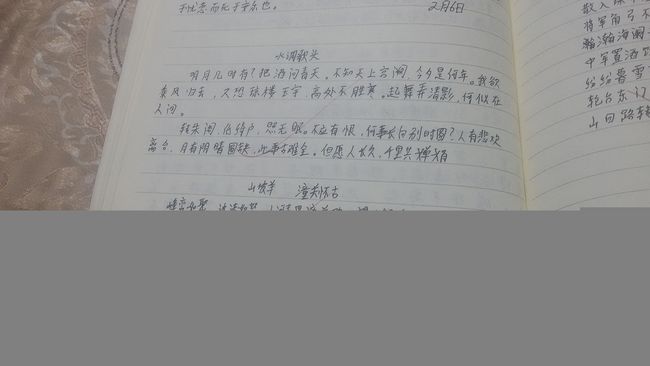 于忧患而死于安乐也。
2月6日
水调歌头
明月几时有？把酒问青天，不知天上宫阙，今夕是何年。我欲
乘风归去，又恐琼楼玉宇，高处不胜寒。起舞弄清影，何似在
人间。
转朱阁，低绮户，照无眠。不应有恨，何事长向别时圆？人有悲欢
离合，月有阴晴圆缺，此事古难全。但愿人长久，千里共婵娟
山坡羊 潼关怀古
峰峦如聚，波涛如怒，
散入
将军角弓不
瀚海阑
中军置酒
纷纷暮雪
轮台东门
山回路转